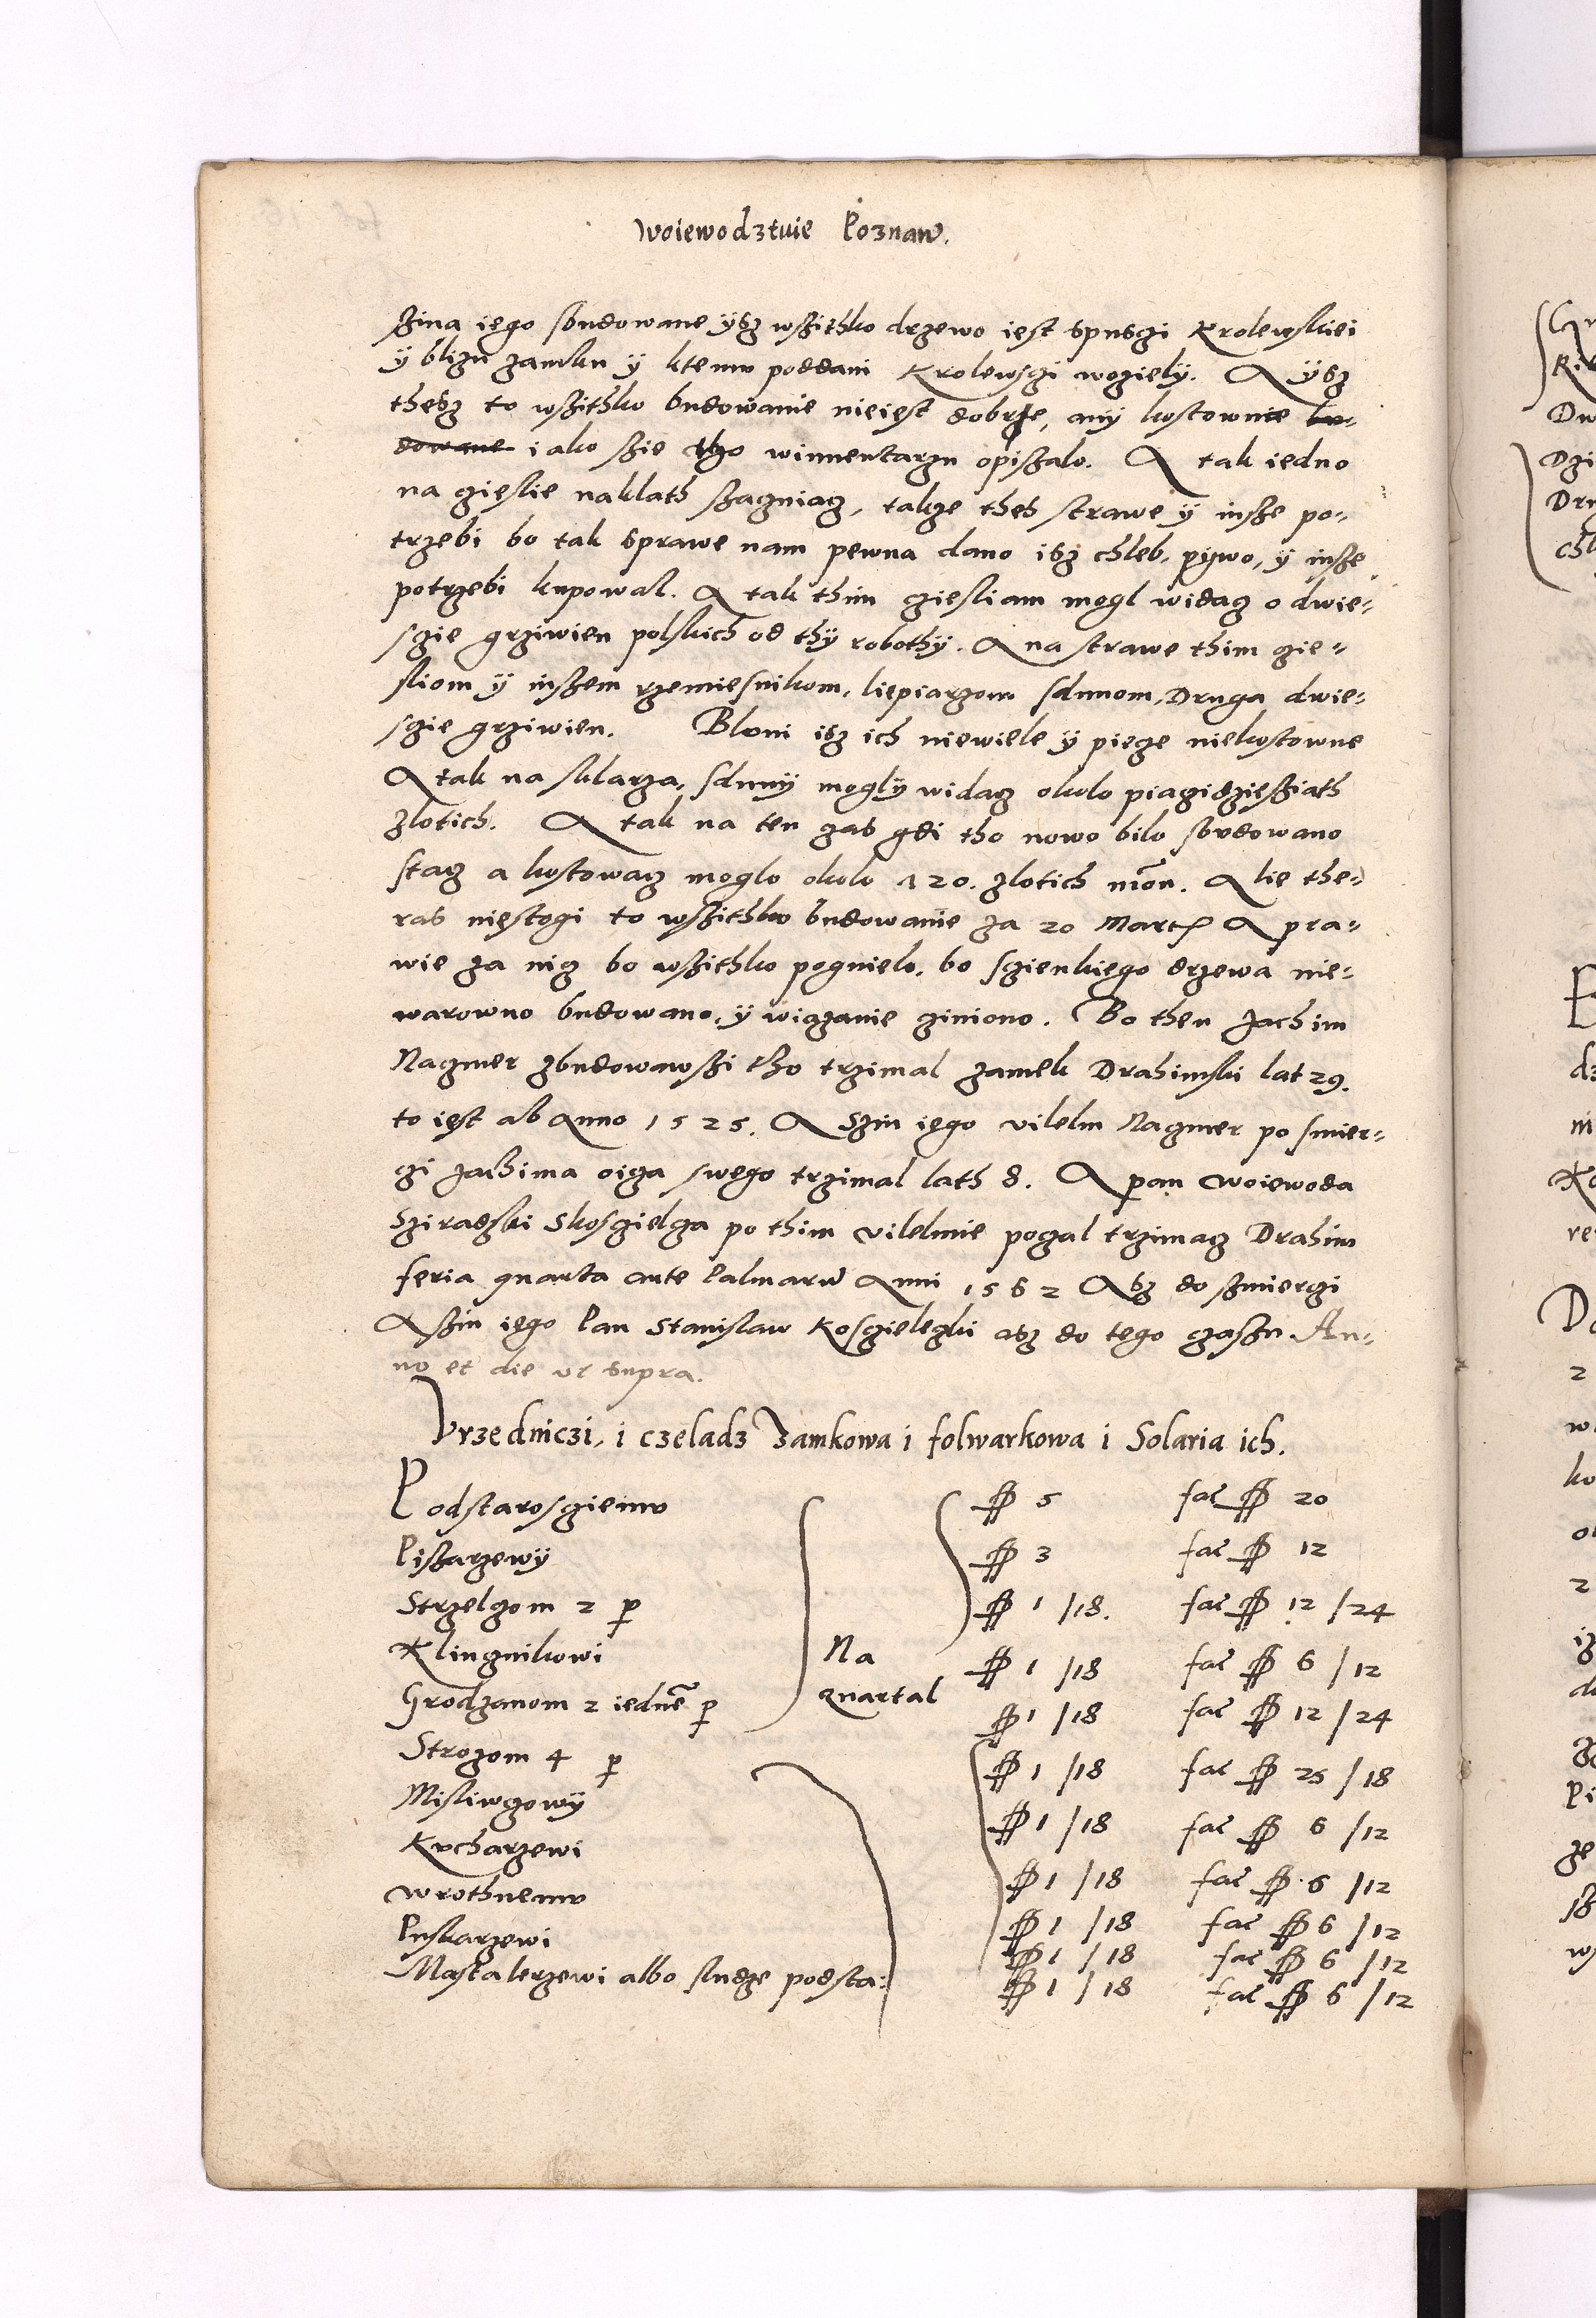 Woiewodztwie Poznaw.
szina iego sbudowane ysz wszithko drzewo iest spusczi Krolewskiei
y blizu zamku y ktemu poddani Krolewsczi woziely. A ysz
thesz to wszithko budowanie nieiest dobrze, any kostownie bu-
dowane iako szie tho winnentarzu opiszalo. A tak iedno
na cieslie naklath szacziacz, takze thes strawe y insze po-
trzebi bo tak sprawe nam pewna dano isz chleb, pywo, y insze
potrzebi kupowal. A tak thim ciesliam mogl widacz o dwie-
scie grziwien polskich od thy robothy. A na strawe thim cie-
sliom y inszem rzemiesnikom, liepiarzom sdunom, Druga dwie-
scie grziwien. Bloni isz ich niewiele y piecze niekostowne
A tak na sklarza, sduny mogly widacz okolo piaczidziesziath
zlotich. A tak na ten czas gdi tho nowo bilo sbudowano
stacz a kostowacz moglo okolo 120. zlotich mon. A lie the-
ras niestogi to wszithko budowanie za 20 Marc A pra-
wie za nicz bo wszithko pognielo, bo sczienkiego drzewa nie-
warowno budowano, y wiązanie cziniono. Bo then Jachim
Naczmer zbudowawszi tho trzimal zamek Drahimski lat 29.
to iest ab Anno 1525. A Szin iego vilelm Naczmer po smier-
czi Jachima oicza swego trzimal lath 8. A pan woiewoda
Sziradzki Skosczielcza po thim vilelmie poczal trzimacz Drahim
feria quarta ante Palmarum Anni 1562 Asz do szmierczi
A szin iego Pan Stanislaw Kosczieleczki asz do tego czaszu An-
no et die ut supra.
Vrzedniczi, i czeladz zamkowa i folwarkowa i Solaria ich.
Podstarosciemu ꟼ 5 fac ꟼ 20
Piszarzewy ꟼ 3 fac ꟼ 12
Strzelczom 2 p ꟼ 1 /18. fac ꟼ 12 /24
Klucznikowi Na ꟼ 1 /18 fac ꟼ 6 /12
Grodzanom 2 iednem p quartal ꟼ 1 /18 fac ꟼ 12 /24
Strozom 4 p ꟼ 1 /18 fac ꟼ 25 /18
Misliwczowy ꟼ 1 /18 fac ꟼ 6 /12
Kucharzewi ꟼ 1 /18 fac ꟼ 6 /12
wrothnemu ꟼ 1 /18 fac ꟼ 6 /12
Puskarzewi ꟼ 1 /18 fac ꟼ 6 /12
Mastalerzewi albo sludze podsta: ꟼ 1 /18 fac ꟼ 6 /12